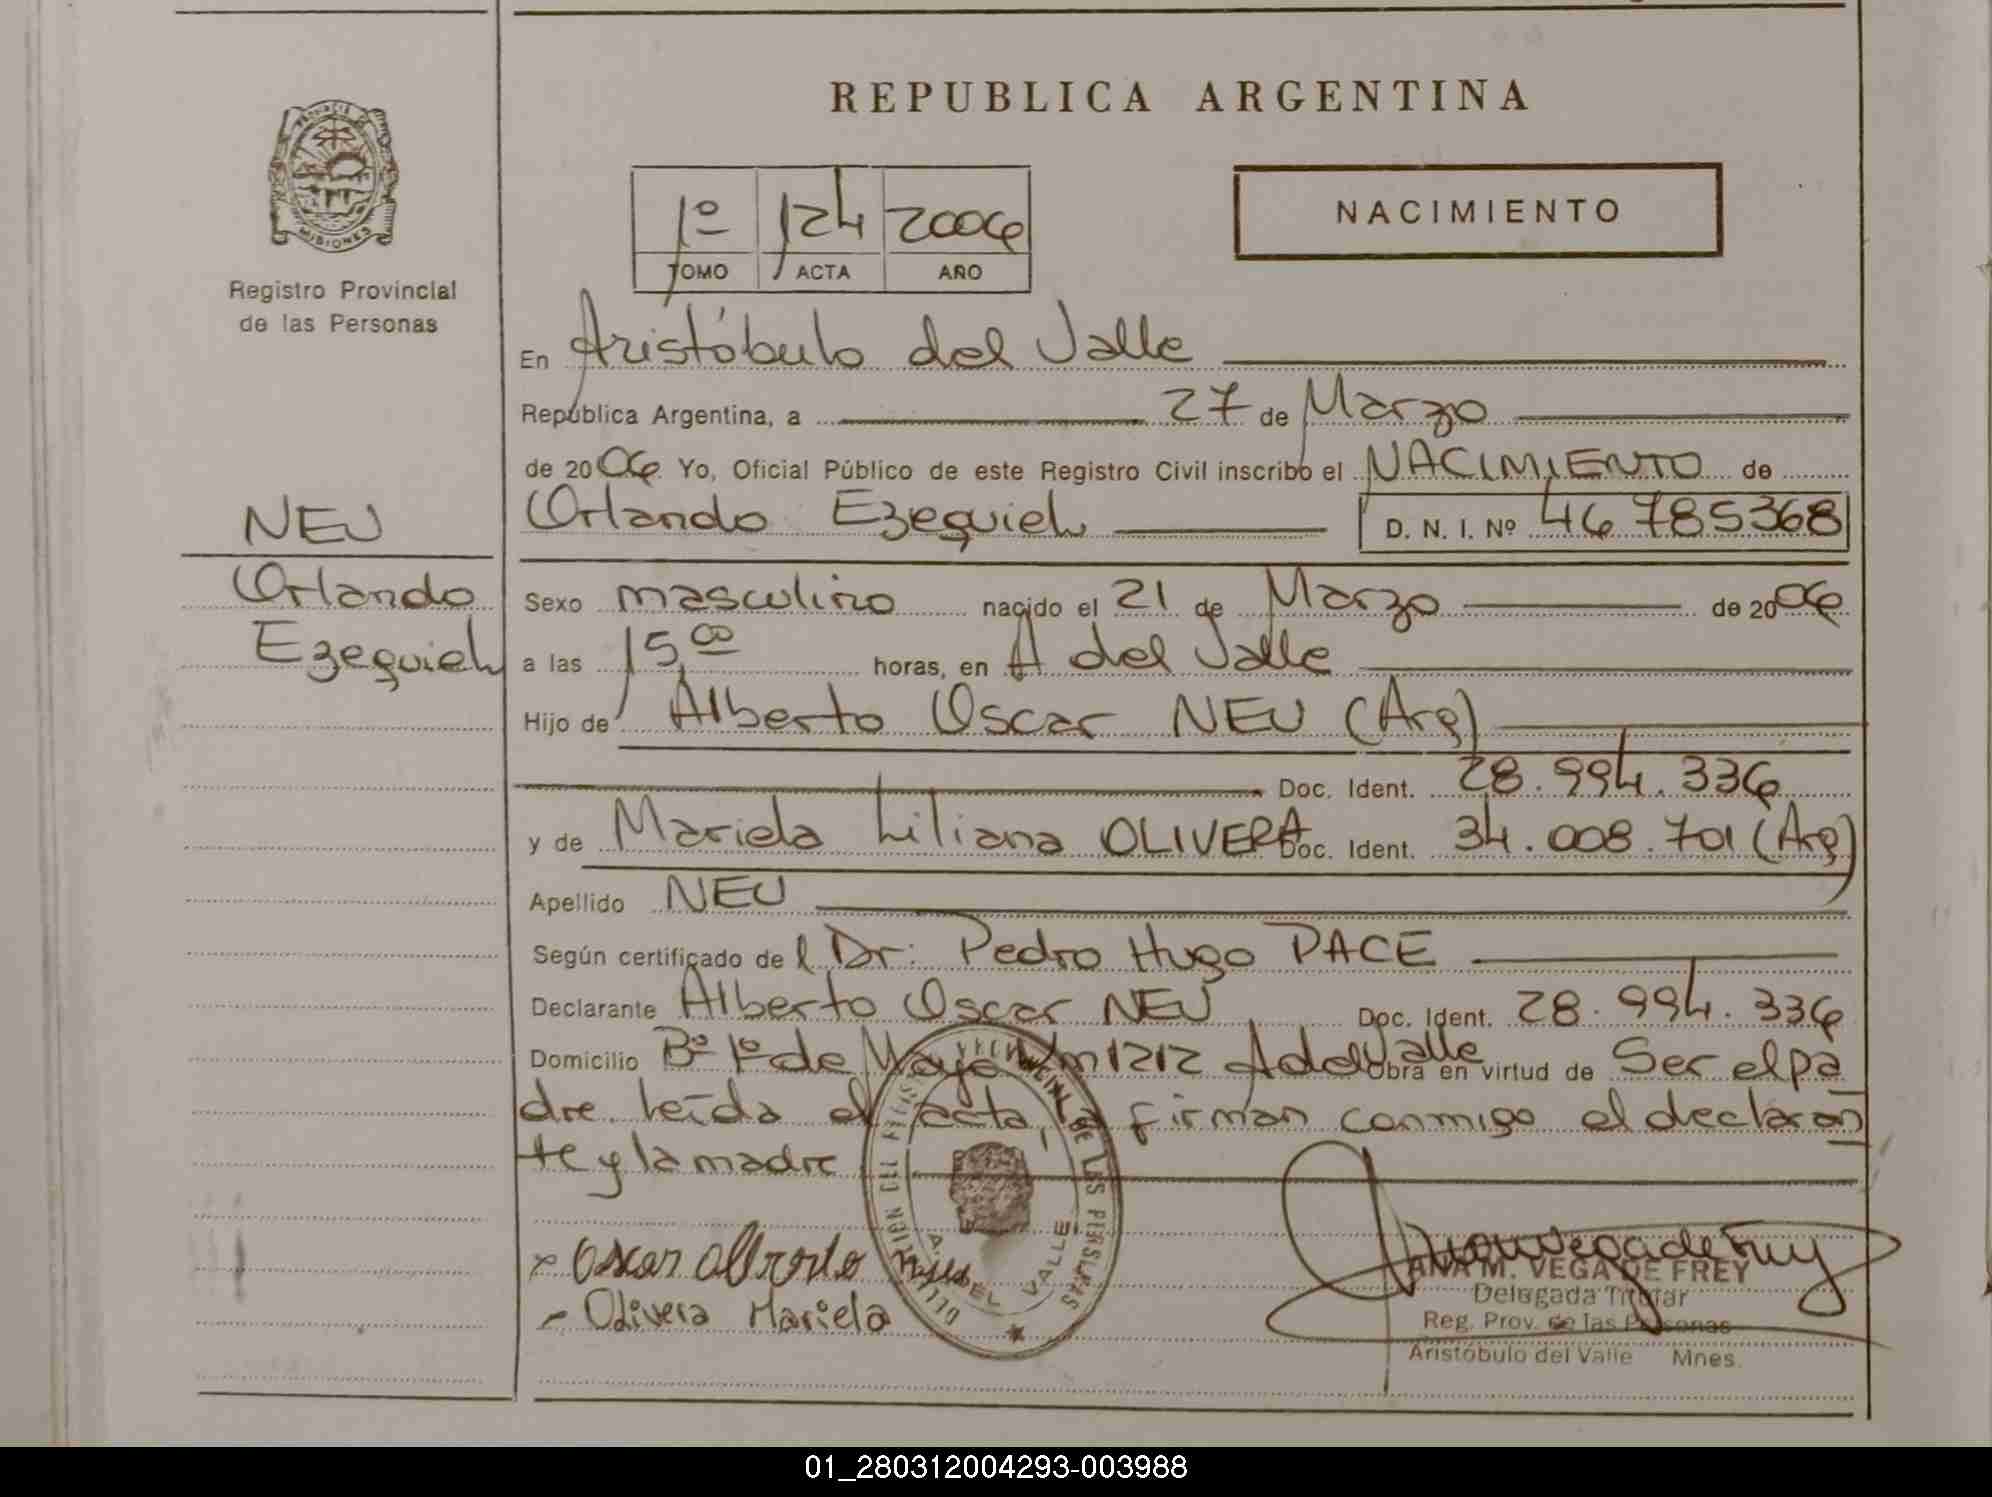 REPUBLICA ARGENTINA
PROVINCIA DE MISIONES
Registro Provincial
de las Personas
1º 124 2006
TOMO ACTA AÑO
NACIMIENTO
En Aristóbulo del Valle
República Argentina, a 27 de Marzo
de 2006 Yo, Oficial Público de este Registro Civil inscribo el NACIMIENTO de
Orlando Ezequiel D. N. I. Nº 46.785368
NEU
Orlando
Ezequiel
Sexo masculino nacido el 21 de Marzo de 2006
a las 15,00 horas, en A del Valle
Hijo de Alberto Oscar NEU (Arg)
Doc. Ident. 28.994.336
y de Mariela Liliana OLIVERA Doc. Ident. 34.008.701 (Arg)
Apellido NEU
Según certificado del Dr: Pedro Hugo PACE
Declarante Alberto Oscar NEU Doc. Ident. 28.994.336
Domicilio Bº 1º de Mayo 1212 A del Valle Obra en virtud de Ser el pa
dre. leída el acta, la firman conmigo el declaran
te y la madre
Oscar Alberto Neu
Olivera Mariela
DELEGACION DEL REGISTRO PROVINCIAL DE LAS PERSONAS
A. DEL VALLE
ANA M. VEGA DE FREY
Delegada Titular
Reg. Prov. de las Personas
Aristóbulo del Valle Mnes.
01_280312004293-003988